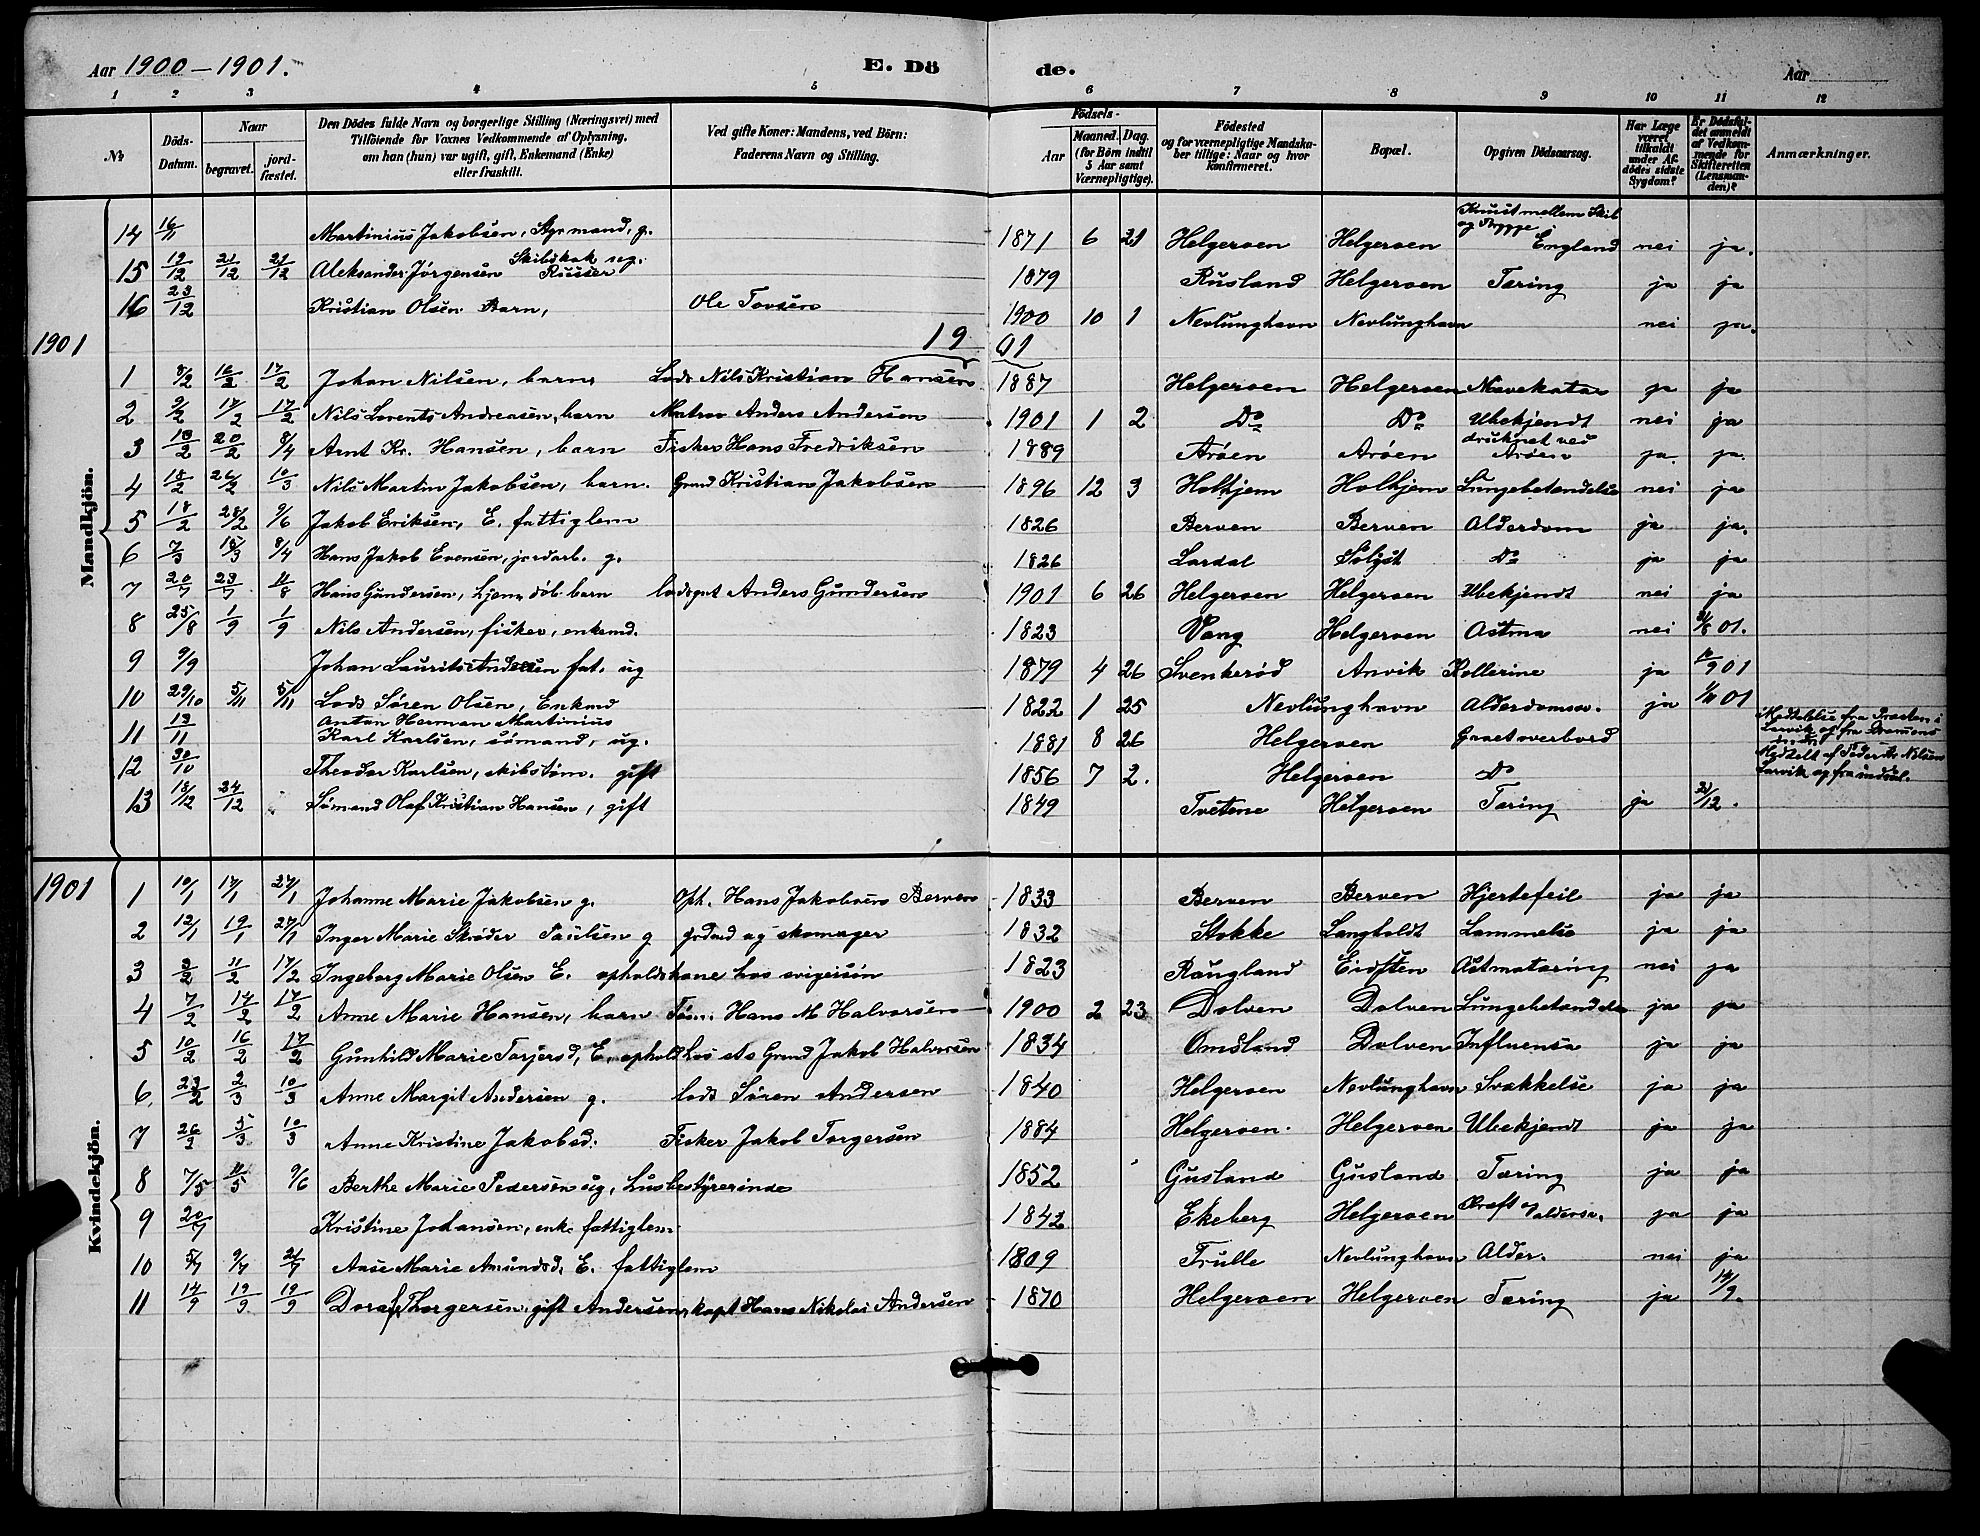 Aar 1900-1901. E. Dö de. Aar
1 2 3 4 5 6 7 8 9 10 11 12
№ Döds-Datum. Naar begravet. jordfæstet. Den Dödes fulde Navn og borgerlige Stilling (Næringsvei) med Tilföiende for Voxnes Vedkommende af Oplysning, om han (hun) var ugift, gift, Enkemand (Enke) eller fraskilt. Ved gifte Koner: Mandens, ved Börn: Faderens Navn og Stilling. Födsels- Aar Maaned. Dag. (for Børn indtil 5 Aar samt Værnepligtige). Födested og for værnepligtige Mandskaber tillige: Naar og hvor konfirmeret. Bopæl. Opgiven Dödsaarsag. Har Læge været tilkaldt under Afdödes sidste Sygdom? Er Dödsfaldet anmeldt af Vedkommende for Skifteretten (Lensmanden)? Anmærkninger.
Mandkjön.
14 16/11 Martinius Jakobsen, Styrmand, g. 1871 6 21 Helgeroen Helgeroen Knust mellem Skib og Brygge i England nei ja.
15 19/12 21/12 21/12 Aleksander Jörgensen Skibskok ug. Russer 1879 Rusland Helgeroen Tæring ja ja
16 23/12 Kristian Olsen Barn, Ole Tovsen 1900 10 1 Nevlunghavn Nevlunghavn nei ja.
1901 19 01
1 8/2 16/2 17/2 Johan Nilsen, barn Lods Nils Kristian Hansen 1887 Helgeroen Helgeroen Mavekatar ja ja
2 9/2 17/2 17/2 Nils Lorents Andreasen, barn Matros Anders Andersen 1901 1 2 Do Do Ubekjendt nei ja
3 13/2 20/2 8/4 Arnt Kr. Hansen, barn Fisker Hans Fredriksen 1889 Aröen Aröen druknet ved Aröen ja. ja.
4 18/2 26/2 10/3 Nils Martin Jakobsen, barn. Grmd Kristian Jakobsen 1896 12 3 Holhjem Holhjem Lungebetændelse nei ja
5 18/2 28/2 9/6 Jakob Eriksen, E. fattiglem 1826 Berven Berven Alderdom ja ja.
6 7/3 15/3 8/4 Hans Jakob Evensen, jordarb. g. 1826 Lardal Solyst Do ja ja
7 20/7 23/7 11/8 Hans Gundersen, hjem. döb. barn lodsgut Anders Gundersen 1901 6 26 Helgeroen Helgeroen Ubekjendt nei ja
8 25/8 1/9 1/9 Nils Andersen, fisker, enkemd. 1823 Vang Helgeroen Astma nei 01.
9 9/9 Johan Laurits Andersen fat. ug 1879 4 26 Svenkeröd Anvik Kollerine ja 901
10 29/10 5/11 5/11 Lods Sören Olsen, Enkmd 1822 1 25 Nevlunghavn Alderdomssv. ja 01
11 13/11 Anton Herman Martinius Karl Karlsen, sömand, ug. 1881 8 26 Helgeroen Gaaet overbord Meddelelse fra Præsten i Larvik og fra Drammens
12 30/10 Theodor Karlsen, skibstöm. gift 1856 7 2. Helgeroen Do Meddelt af Peder A. Nilsen Larvik og fra
13 18/12 24/12 Sömand Olaf Kristian Hansen, gift 1849 Tvetene Helgeroen Tæring ja 21/12.
Kvindekjön.
1901
1 10/1 17/1 27/1 Johanne Marie Jakobsen g. Oph. Hans Jakobsen Berven 1833 Berven Berven Hjertefeil ja ja
2 12/1 19/1 27/1 Inger Marie Skröder Paulsen g jordmd og skomager 1832 Stokke Langholdt Lammelse ja ja
3 3/2 11/2 17/2 Ingeborg Marie Olsen E. opholdskone hos svigersön 1823 Raugland Eidsten Astmatæring nei ja
4 7/2 14/2 17/2 Anne Marie Hansen, barn Töm. Hans M Halvorsen 1900 2 23 Dolven Dolven Lungebetændelse ja ja
5 10/2 16/2 17/2 Gunhild Marie Torjersd, E. ophold hos sts Grmd Jakob Halvorsen 1834 Omsland Dolven Influensa ja ja
6. 23/2 2/3 10/3 Anne Margit Andersen g. lods Sören Andersen 1840 Helgeroen Nevlunghavn Svækkelse ja ja
7 26/2 5/3 10/3 Anne Kristine Jakobsd. Fisker Jakob Torgersen 1884 Helgeroen. Helgeroen Ubekjendt ja ja
8 7/5 11/5 9/6 Berthe Marie Pedersen ug, husbestyrerinde 1852 Gusland Gusland Tæring ja ja
9 20/7 Kristine Johansen, enke fattiglem 1842 Ekeberg Helgeroen Kræft og aldersv. ja ja
10 5/7 9/7 21/7 Aase Marie Amundsd, E. fattiglem 1809 Trulle Nevlunghavn Alder. nei ja
11 14/9 19/9 19/9 Dora f. Thorgersen, gift Andersen, kapt Hans Nikolai Andersen 1870 Helgeroen Helgeroen Tæring ja 14/9.